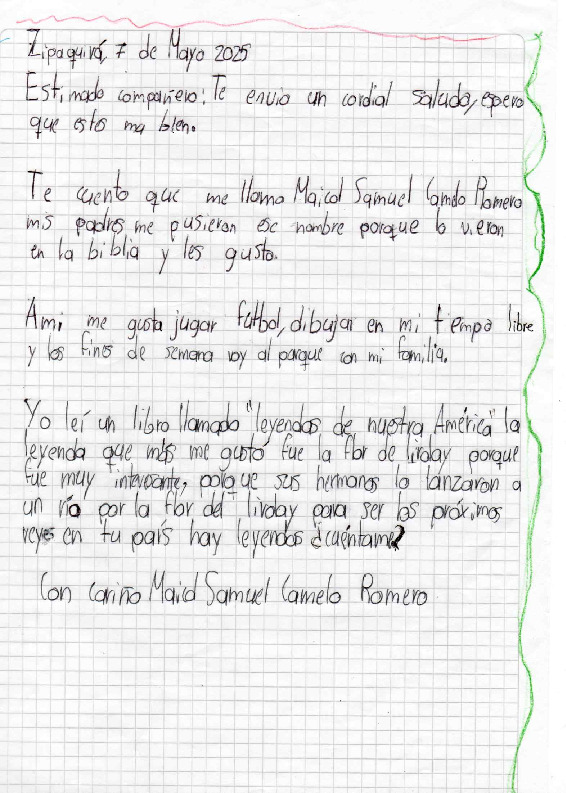 Zipaquirá, 7 de Mayo 2025
Estimado compañero: Te envio un cordial saludo, espero
que estes ma bien.
Te cuento que me llamo Maicol Samuel Camelo Romero
mis padres me pusieron ese nombre porque lo vieron
en la biblia y les gusto.
Ami me gusta jugar futbol, dibujar en mi tiempo libre
y los fines de semana voy al parque con mi familia.
Yo leí un libro llamado "leyendas de nuestra América" la
leyenda que más me gustó fue la flor de lirolay porque
fue muy interesante, porque sus hermanos lo lanzaron a
un río por la flor del lirolay para ser los próximos
reyes en tu país hay leyendas ¿cuéntame?
Con cariño Maicol Samuel Camelo Romero